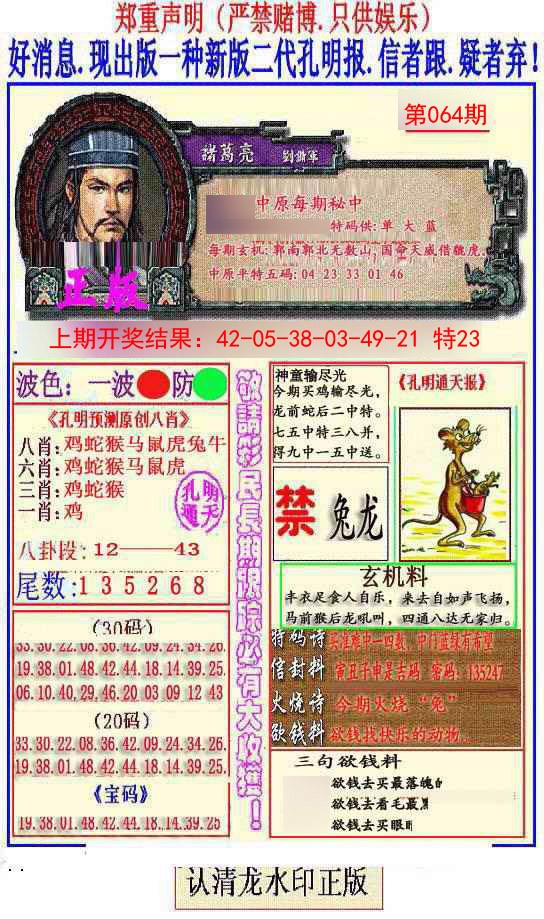 郑重声明（严禁赌博.只供娱乐）
好消息.现出版一种新版二代孔明报.信者跟.疑者弃！
第064期
諸葛亮 劉備軍
中原每期秘中
特码供:单大蓝
每期玄机:郭南郭北无数山,国命天威借虢虎.
中原平特五码:04 23 33 01 46
正版
上期开奖结果：42-05-38-03-49-21 特23
波色：一波 防
《孔明预测原创八肖》
八肖:鸡蛇猴马鼠虎兔牛
六肖:鸡蛇猴马鼠虎
三肖:鸡蛇猴
一肖:鸡
孔明
通天
八卦段:12——43
尾数:135268
(30码)
33.30.22.08.36.42.09.24.34.26.
19.38.01.48.42.44.18.14.39.25
06.10.40,29,46.20 03 09 12 43
(20码)
33.30.22.08.36.42.09.24.34.26.
19.38.01.48.42.44.18.14.39.25.
《宝码》
19.38.01.48.42.44.18..14.39.25
敬請彩民長期跟踪必有大收獲！
神童输尽光
今期买鸡输尽光,
龙前蛇后二中特。
七五中特三八并,
得九中一五中送。
《孔明通天报》
禁 兔龙
玄机料
丰衣足食人自乐，来去自如声飞扬,
马前猴后龙吼叫，四通八达无家归。
特码诗 买准难中一四数，中门蓝绿有希望
信封料 寅丑壬申是吉码 密码：135247
火烧诗 今期火烧“兔”
欲钱料 欲钱找快乐的动物..
三句欲钱料
欲钱去买最落魄的
欲钱去看毛最黑
欲钱去买眼
认清龙水印正版